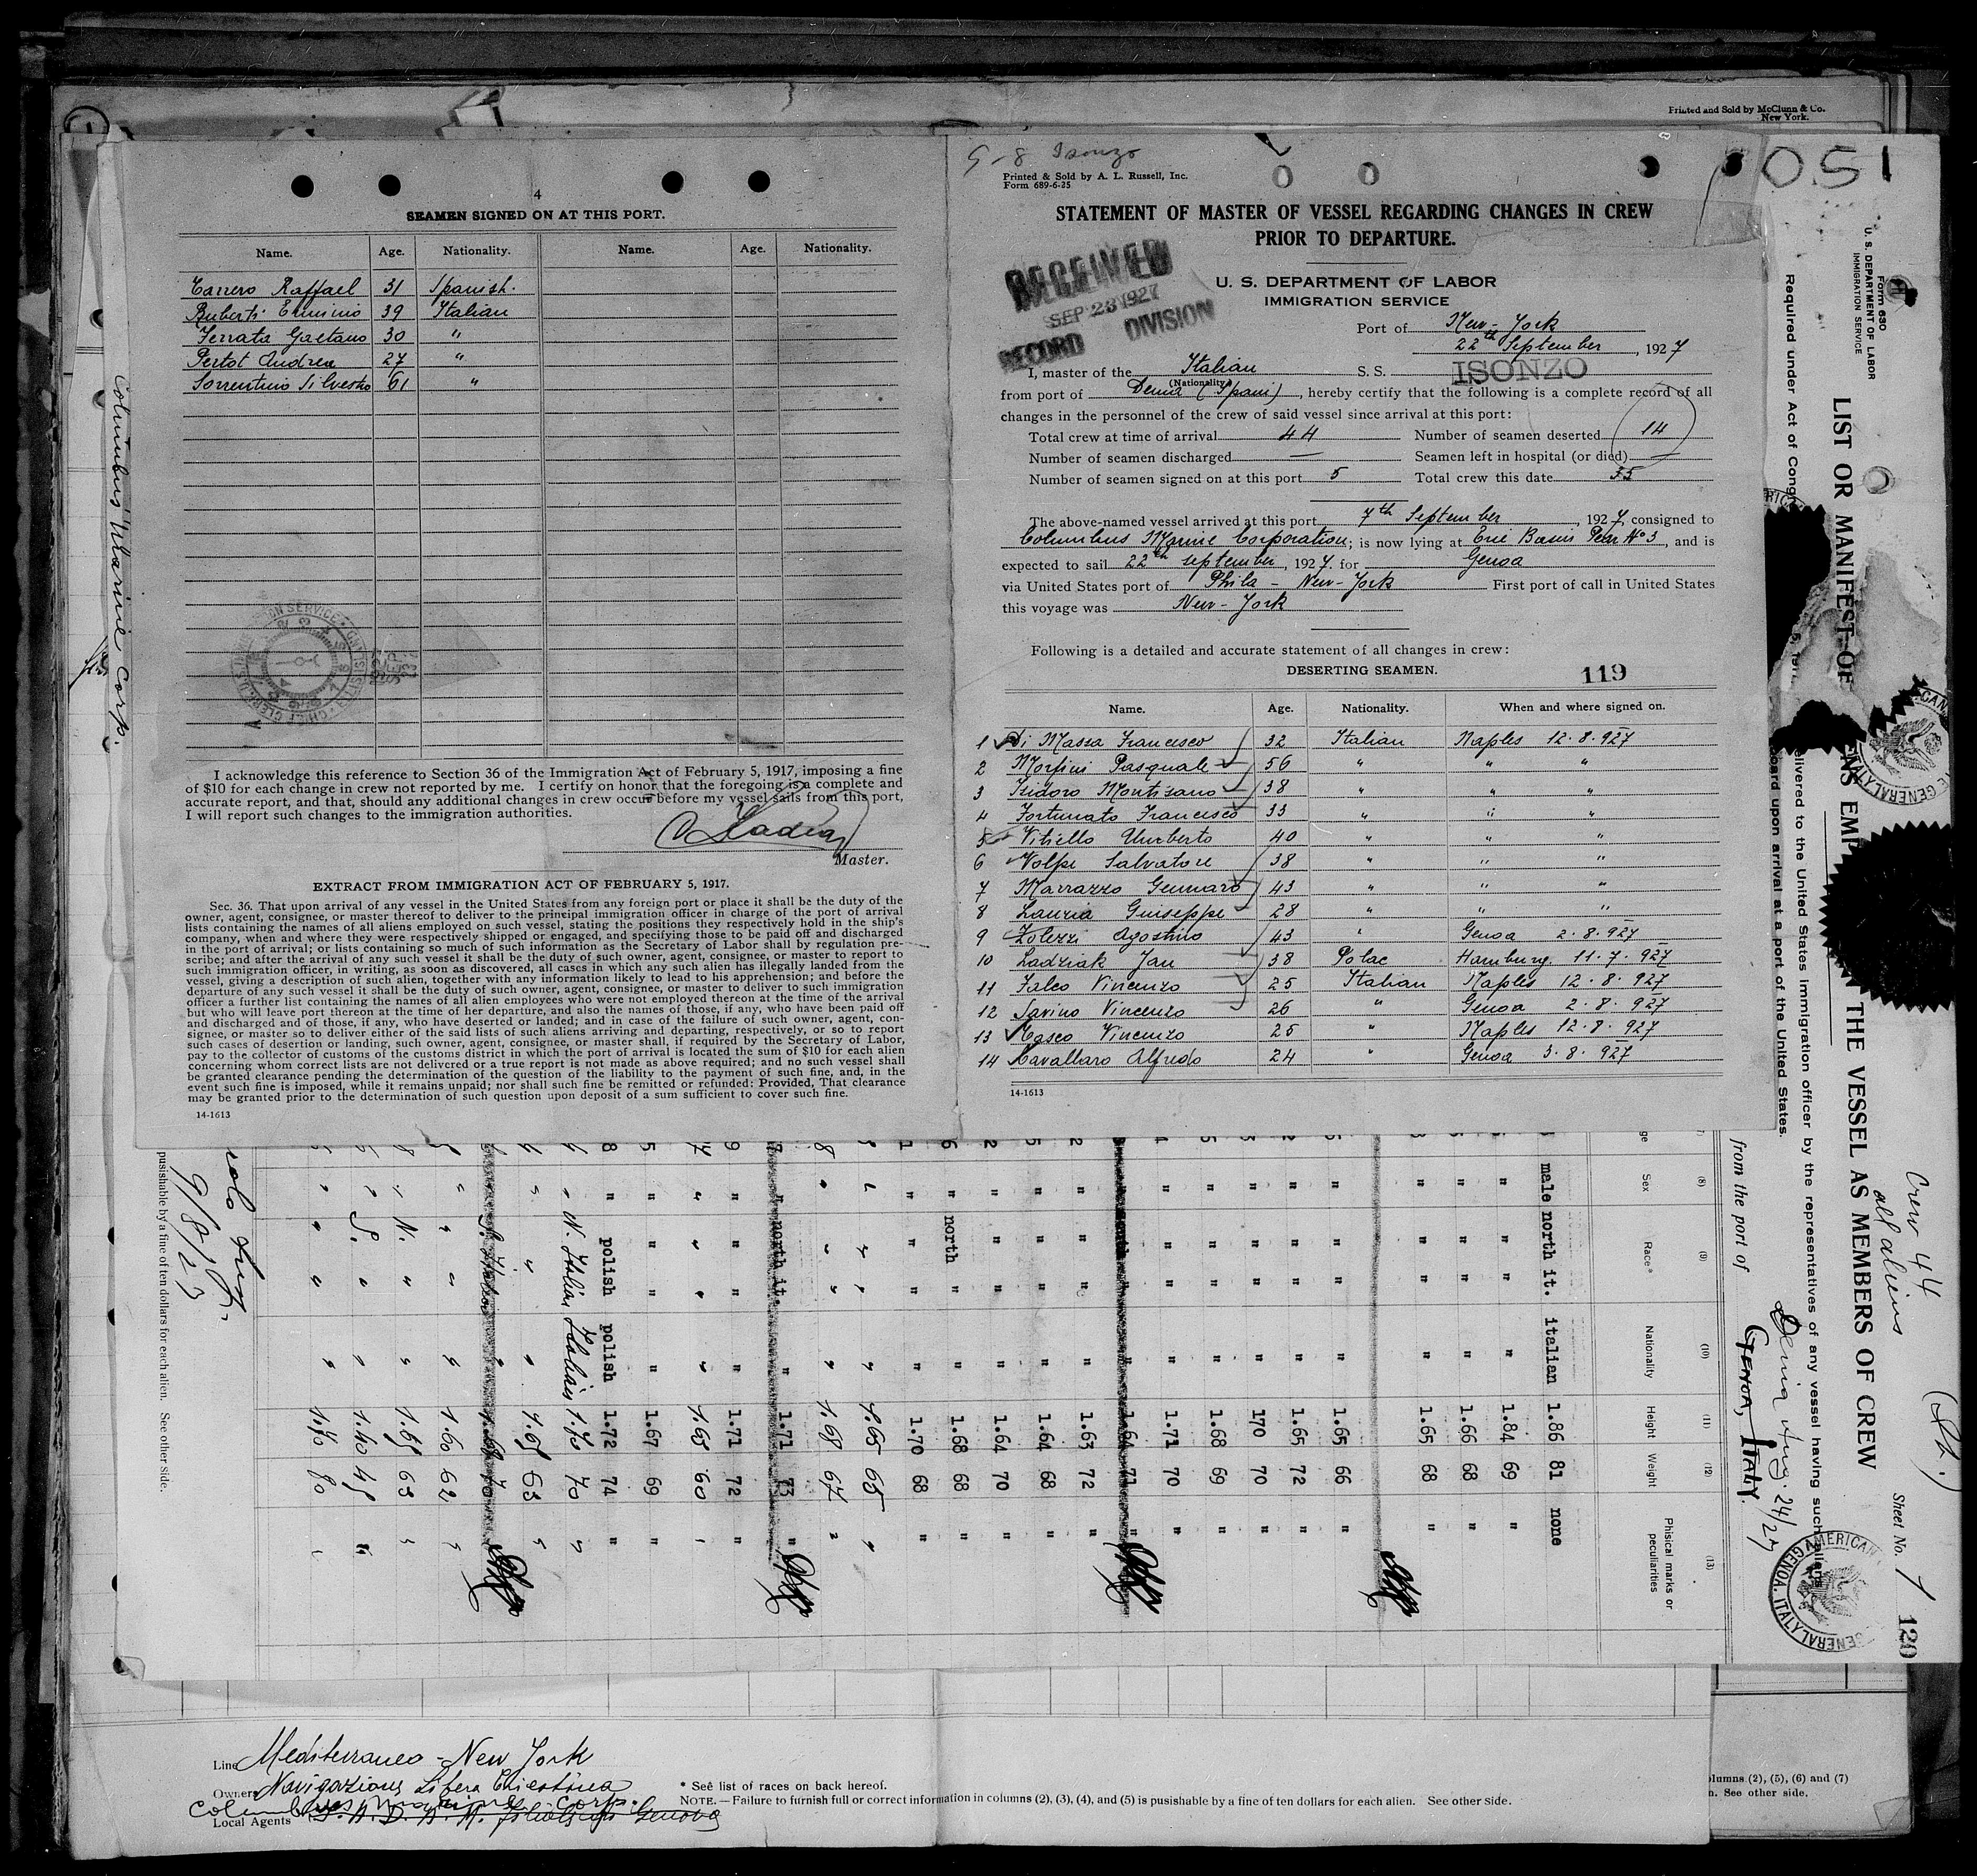 Printed and Sold by McClunn & Co.
New York.
4
SEAMEN SIGNED ON AT THIS PORT.
Name. Age. Nationality. Name. Age. Nationality.
Carrero Raffael 31 Spanish.
Ruberti Erminio 39 Italian
Ferrata Gaetano 30 "
Pertot Andrea 27 "
Sorrentino Silvestro 61 "
I acknowledge this reference to Section 36 of the Immigration Act of February 5, 1917, imposing a fine
of $10 for each change in crew not reported by me. I certify on honor that the foregoing is a complete and
accurate report, and that, should any additional changes in crew occur before my vessel sails from this port,
I will report such changes to the immigration authorities.
Master.
EXTRACT FROM IMMIGRATION ACT OF FEBRUARY 5, 1917.
Sec. 36. That upon arrival of any vessel in the United States from any foreign port or place it shall be the duty of the
owner, agent, consignee, or master thereof to deliver to the principal immigration officer in charge of the port of arrival
lists containing the names of all aliens employed on such vessel, stating the positions they respectively hold in the ship's
company, when and where they were respectively shipped or engaged, and specifying those to be paid off and discharged
in the port of arrival; or lists containing so much of such information as the Secretary of Labor shall by regulation pre-
scribe; and after the arrival of any such vessel it shall be the duty of such owner, agent, consignee, or master to report to
such immigration officer, in writing, as soon as discovered, all cases in which any such alien has illegally landed from the
vessel, giving a description of such alien, together with any information likely to lead to his apprehension; and before the
departure of any such vessel it shall be the duty of such owner, agent, consignee, or master to deliver to such immigration
officer a further list containing the names of all alien employees who were not employed thereon at the time of the arrival
but who will leave port thereon at the time of her departure, and also the names of those, if any, who have been paid off
and discharged and of those, if any, who have deserted or landed; and in case of the failure of such owner, agent, con-
signee, or master so to deliver either of the said lists of such aliens arriving and departing, respectively, or so to report
such cases of desertion or landing, such owner, agent, consignee, or master shall, if required by the Secretary of Labor,
pay to the collector of customs of the customs district in which the port of arrival is located the sum of $10 for each alien
concerning whom correct lists are not delivered or a true report is not made as above required; and no such vessel shall
be granted clearance pending the determination of the question of the liability to the payment of such fine, and, in the
event such fine is imposed, while it remains unpaid; nor shall such fine be remitted or refunded: Provided, That clearance
may be granted prior to the determination of such question upon deposit of a sum sufficient to cover such fine.
14-1613
Columbus Marine Corp.
9-8 Isonzo
Printed & Sold by A. L. Russell, Inc.
Form 689-6-25
STATEMENT OF MASTER OF VESSEL REGARDING CHANGES IN CREW
PRIOR TO DEPARTURE.
RECEIVED
SEP 23 1927
RECORD DIVISION
U. S. DEPARTMENT OF LABOR
IMMIGRATION SERVICE
Port of New-York
22th September, 1927
I, master of the Italian S. S. ISONZO
(Nationality)
from port of Denia (Spain), hereby certify that the following is a complete record of all
changes in the personnel of the crew of said vessel since arrival at this port:
Total crew at time of arrival 44 Number of seamen deserted 14
Number of seamen discharged — Seamen left in hospital (or died) —
Number of seamen signed on at this port 5 Total crew this date 35
The above-named vessel arrived at this port 7th September, 1927, consigned to
Columbus Marine Corporation; is now lying at Erie Basin Pear No 3, and is
expected to sail 22th september, 1927. for Genoa
via United States port of Phila - New-York First port of call in United States
this voyage was New-York
Following is a detailed and accurate statement of all changes in crew:
DESERTING SEAMEN. 119
Name. Age. Nationality. When and where signed on.
1 Di Massa Francesco 32 Italian Naples 12.8.927
2 Morfini Pasquale 56 " " "
3 Isidoro Montisano 38 " " "
4 Fortunato Francesco 33 " " "
5 Vitiello Umberto 40 " " "
6 Volpe Salvatore 38 " " "
7 Marrazzo Gennaro 43 " " "
8 Lauria Guiseppe 28 " " "
9 Zolezzi Agostino 43 " Genoa 2.8.927
10 Ladziak Jan 38 Polac Hamburg 11.7.927
11 Falco Vincenzo 25 Italian Naples 12.8.927
12 Savino Vincenzo 26 " Genoa 2.8.927
13 Casco Vincenzo 25 " Naples 12.8.927
14 Cavallaro Alfredo 24 " Genoa 3.8.927
14-1613
5051
Form 630
U. S. DEPARTMENT OF LABOR
IMMIGRATION SERVICE
LIST OR MANIFEST OF
THE VESSEL AS MEMBERS OF CREW
Required under Act of Congr
delivered to the United States immigration officer by the representatives of any vessel having such aliens
board upon arrival at a port of the United States.
Crew 44
all aliens
Sheet No. 1
120
from the port of Genoa, Italy.
Denia Aug. 24/27
AMERICAN
GENOA, ITALY
(8) (9) (10) (11) (12) (13)
Sex Race* Nationality Height Weight Phisical marks or
peculiarities
male north it. italian 1.86 81 none
" " " 1.84 69 "
" " " 1.66 68 "
" " " 1.65 68 "
" " " 1.65 66 "
" " " 1.65 72 "
" " " 170 70 "
" " " 1.68 69 "
" " " 1.71 70 "
" " " 1.64 71 "
" " " 1.63 72 "
" " " 1.64 68 "
" " " 1.64 70 "
" north " " 1.68 68 "
" " " 1.70 68 "
" " " 1.65 65 "
" " " 1.68 67 "
" north it. " 1.71 73 "
" " " 1.71 72 "
" " " 1.65 60 "
" " " 1.67 69 "
" polish polish 1.72 74 "
" N. Italian Italian 1.70 70 "
" " " 1.65 63 "
" S. Italian " 1.68 70
" " " 1.60 62 "
" N. " " 1.65 63 "
" S. " " 1.40 45 "
" " " 1.70 80
9/8/27
pusishable by a fine of ten dollars for each alien. See other side.
Line Mediterraneo - New York
Owners Navigazione Libera Triestina
Columbus Marine Corp.
Local Agents
* See list of races on back hereof.
NOTE.—Failure to furnish full or correct information in columns (2), (3), (4), and (5) is pusishable by a fine of ten dollars for each alien. See other side.
olumns (2), (5), (6) and (7)
n. See other side.